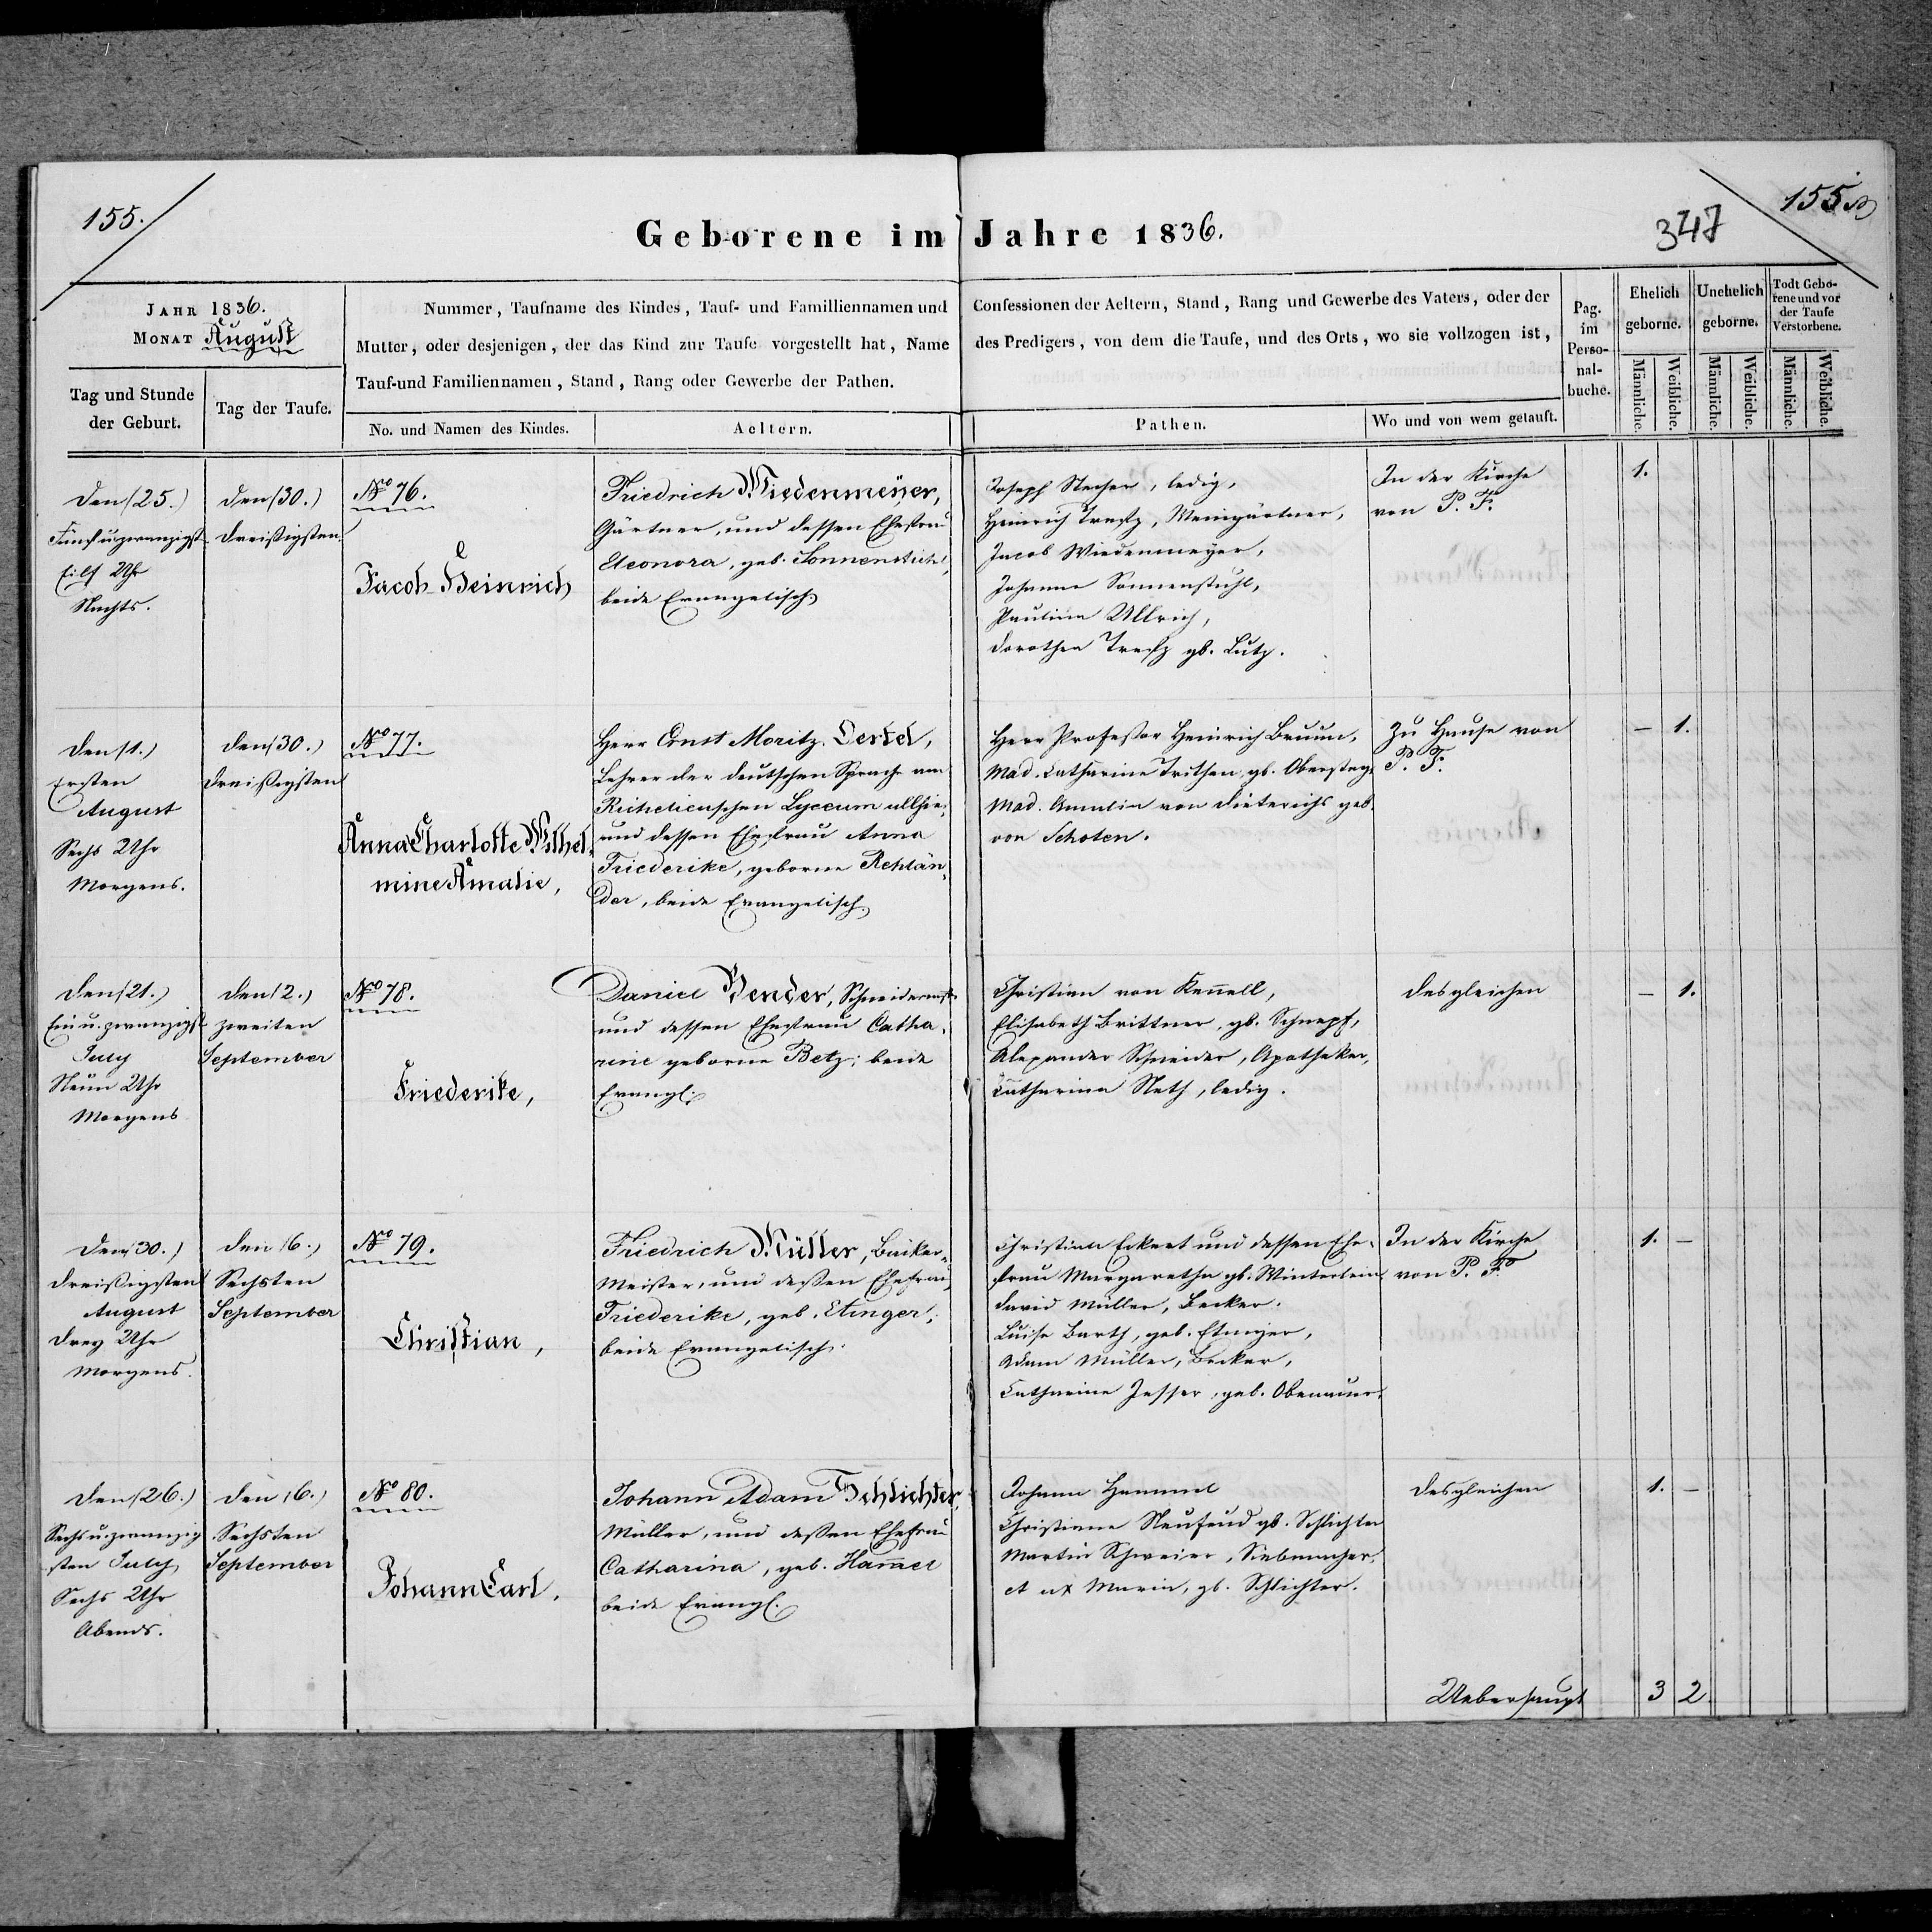 155.
155.b
347
Geborene im Jahre 1836.
JAHR 1836.
MONAT August
Tag und Stunde der Geburt.
Tag der Taufe.
Nummer, Taufname des Kindes, Tauf- und Familliennamen und
Mutter, oder desjenigen, der das Kind zur Taufe vorgestellt hat, Name
Tauf-und Familiennamen, Stand, Rang oder Gewerbe der Pathen.
No. und Namen des Kindes.
Aeltern.
Confessionen der Aeltern, Stand, Rang und Gewerbe des Vaters, oder der
des Predigers, von dem die Taufe, und des Orts, wo sie vollzogen ist,
Pathen.
Wo und von wem getauft.
Pag. im Perso-nal-buche.
Ehelich geborne.
Unehelich geborne.
Todt Gebo-rene und vor der Taufe Verstorbene.
Männliche.
Weibliche.
Männliche.
Weibliche.
Männliche.
Weibliche.
Den (25.)
Fünfu.zwanzigst
Eilf Uhr
Nachts.
den (30.)
dreißigsten.
No 76.
Jacob Heinrich
Friedrich Wiedenmeyer,
Gärtner, und dessen Ehefrau
Eleonora, geb. Sonnenstichl,
beide Evangelisch
Joseph, ledig,
Heinrich, Weingärtner,
Jacob Wiedenmeyer,
Johanna Sonnenstuhl,
Paulina Ullrich,
Dorothea gb. Lutz.
In der Kirche
von P. F.
1.
Den (1.)
Ersten
August
Sechs Uhr
Morgens.
den (30.)
dreißigsten
No 77.
Anna Charlotte Wilhel,
mine Amalie,
Herr Ernst Moritz Oertel,
Lehrer der deutschen Sprache am
Richelieuschen Lyceum allhier,
und dessen Ehefrau Anna
Friederike, geborne Rehlän,
der, beide Evangelisch
Herr Professor Heinrich Bruun,
Mad. Catharine Trithen, gb. Obersteg,
Mad. Amalia von Dieterichs geb.
von Schoten.
Zu Hause von
P. F.
– 1.
Den (21.)
Ein u. zwanzigst
July
Neun Uhr
Morgens
den (2.)
zweiten
September
No 78.
Friederike,
Daniel Bender, Schneiderms
und dessen Ehefrau Catha,
rine geborne Betz; beide
Evangl.
Christian von Kenell,
Elisabeth Brittner, gb. Schnepf,
Alexander Schneider, Apotheker,
Catharina Neth, ledig.
desgleichen
– 1.
Den (30.)
dreißigsten
August
drey Uhr
Morgens.
den (6.)
Sechsten
September
No 79.
Christian,
Friedrich Müller, Bäcker-
Meister, und deßen Ehefrau,
Friederike, geb. Etinger;
beide Evangelisch.
Christian Eckert und dessen Ehe-
frau Margaretha gb. Winterlein,
David Müller, Becker.
Luise Barth, geb. Etinger,
Adam Müller, Becker,
Catharina Jesser, geb. Obenauer.
In der Kirche
von P. F.
1. –
Den (26.)
Sechs u. zwanzig
sten July
Sechs Uhr
Abends.
den (6.)
Sechsten
September
No 80.
Johann Carl.
Johann Adam Schlichter,
Müller, und deßen Ehefrau
Catharina, geb. Hamel
beide Evangl.
Johann Hammel
Christiana Neufend gb. Schlichter
Martin Schweier, Siebmacher,
et ux Maria, gb. Schlichter.
desgleichen
1. –
Ueberhaupt 3 2.